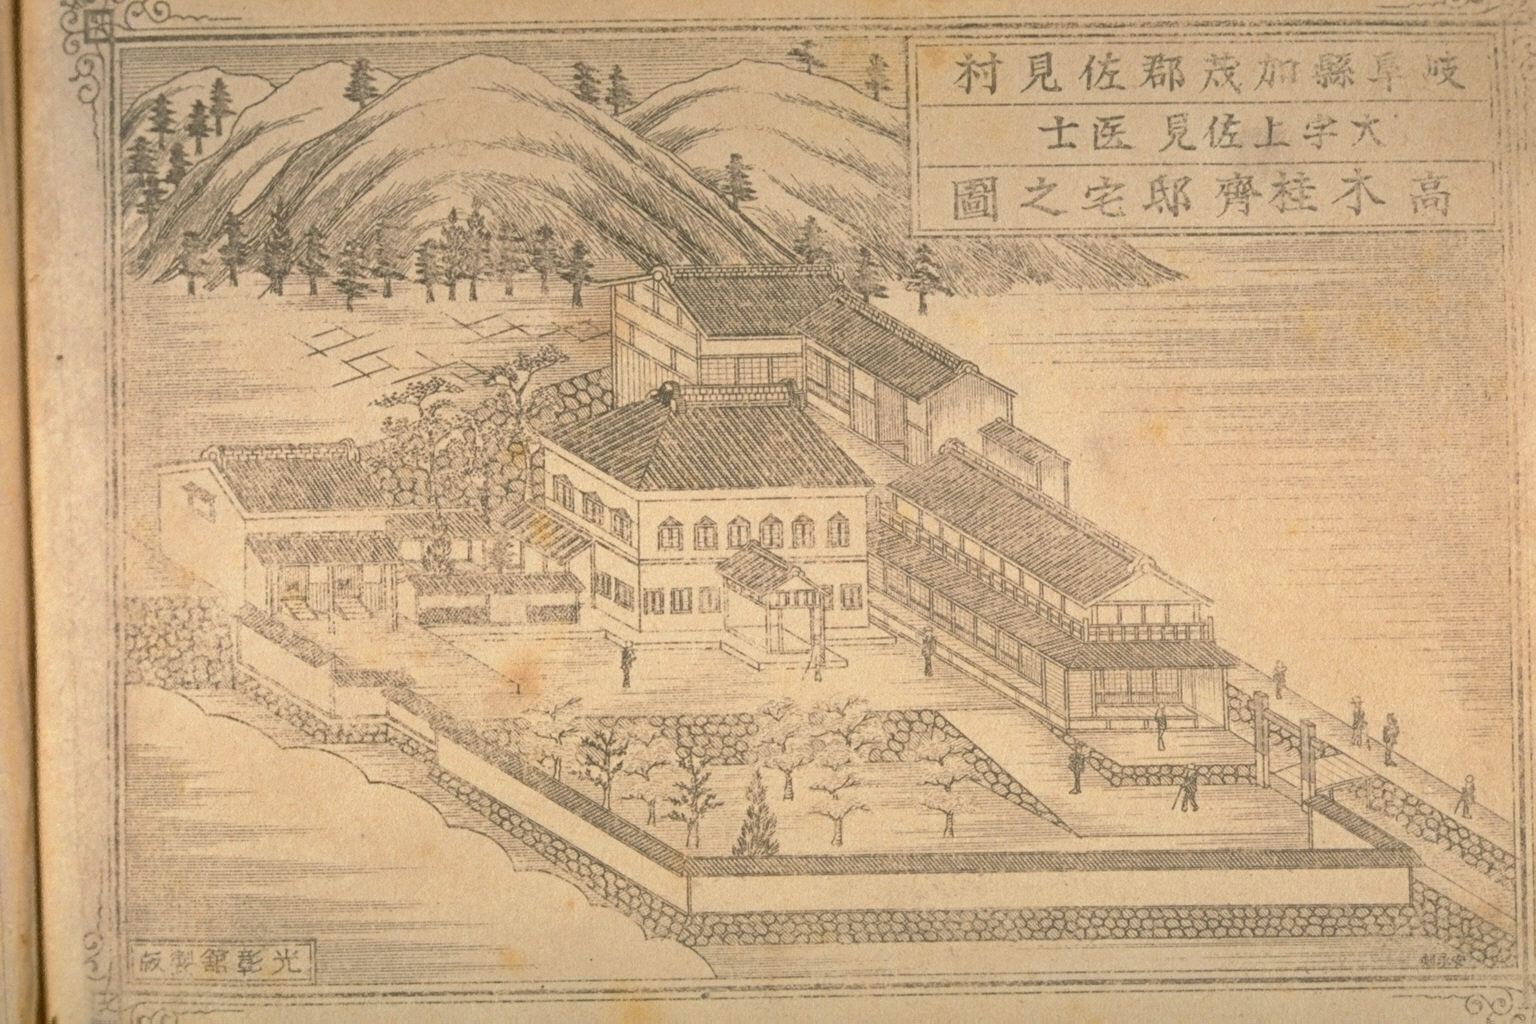 岐阜縣加茂郡佐見村
大字上佐見医士
高木桂齊邸宅之圖
光彰館製版